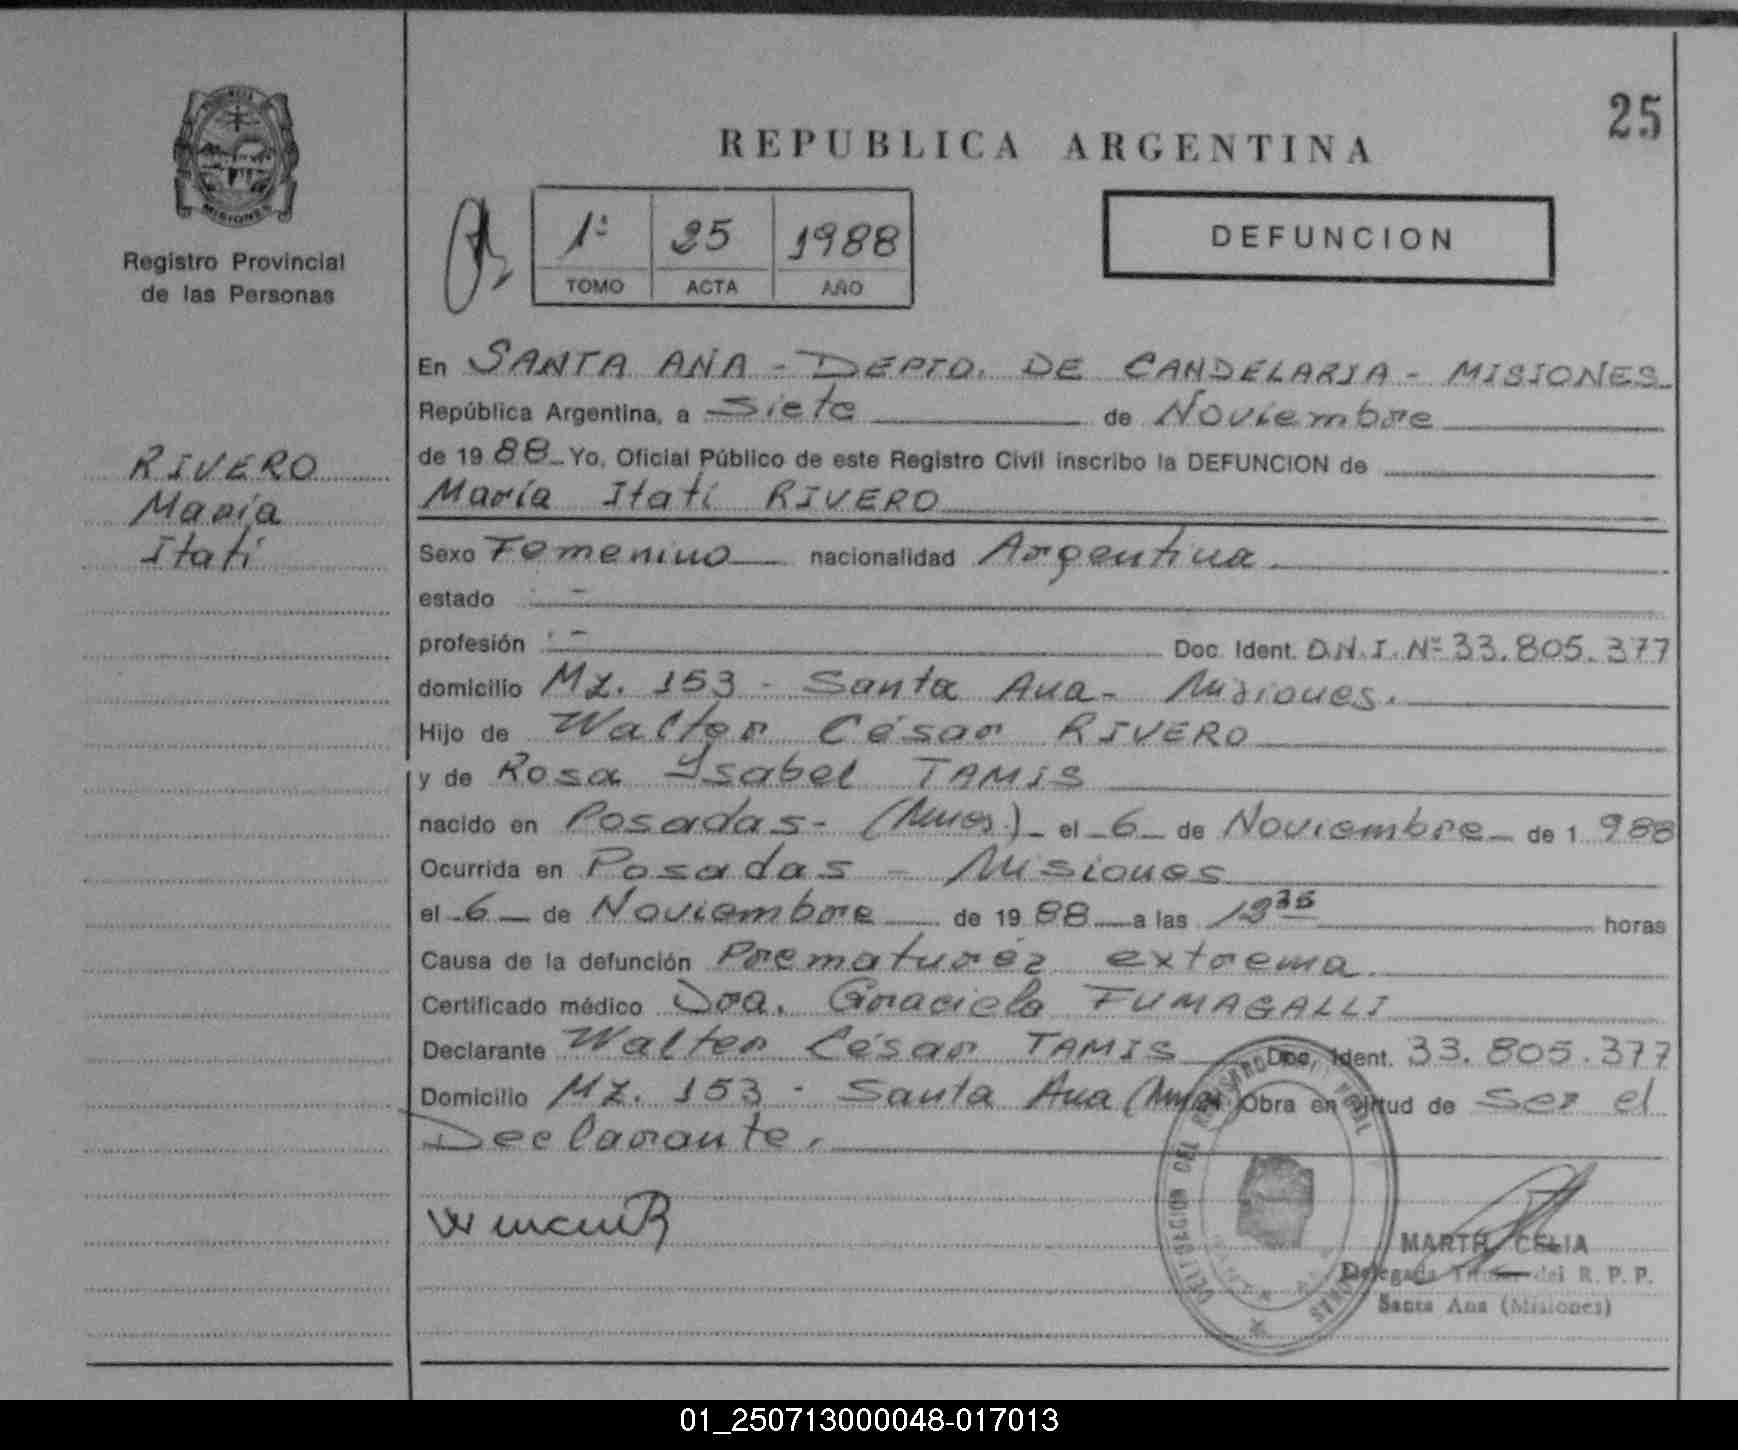 25
REPUBLICA ARGENTINA
PROVINCIA
MISIONES
Registro Provincial
de las Personas
1º 25 1988
TOMO ACTA AÑO
DEFUNCION
RIVERO
María
Itatí
En SANTA ANA - DEPTO. DE CANDELARIA - MISIONES
República Argentina, a Siete de Noviembre
de 1988 Yo, Oficial Público de este Registro Civil inscribo la DEFUNCION de
María Itatí RIVERO
Sexo Femenino nacionalidad Argentina
estado . -
profesión . - Doc. Ident. D.N.I. Nº 33.805.377
domicilio Mz. 153 - Santa Ana - Misiones.
Hijo de Walter César RIVERO
y de Rosa Ysabel TAMIS
nacido en Posadas - (Mnes.) el 6 de Noviembre de 1988
Ocurrida en Posadas - Misiones
el 6 de Noviembre de 1988 a las horas
Causa de la defunción Prematuréz extrema
Certificado médico Dra. Graciela FUMAGALLI
Declarante Walter César TAMIS Doc. Ident. 33.805.377
Domicilio Mz. 153 - Santa Ana (Mnes.) Obra en virtud de Ser el
Declarante.
MARTA CELIA
Delegada Titular del R. P. P.
Santa Ana (Misiones)
01_250713000048-017013